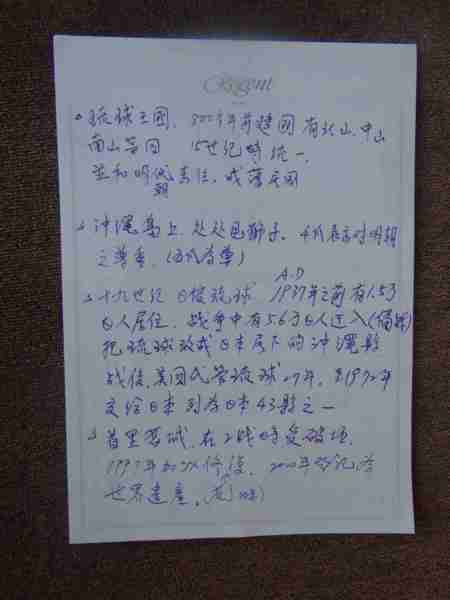 Regent
。琉球王國，800多年前建國 有北山、中山
南山等国 15世纪時統一.
並和明代朝来往，成藩属國
。沖繩島上，处处見獅子，4爪表示对明朝
之尊重，(五爪为尊)
。十九世纪 日侵琉球 A.D
1937年之前有1.5万
日人居住，战争中有5.6万日人迁入
把琉球改成日本属下的沖繩縣
战後，美国代管琉球27年，至1972年
交给日本 列为日本43縣之一
。首里古城，在2战時受破坏，
年加以修復，2000年登记为
世界遗產，